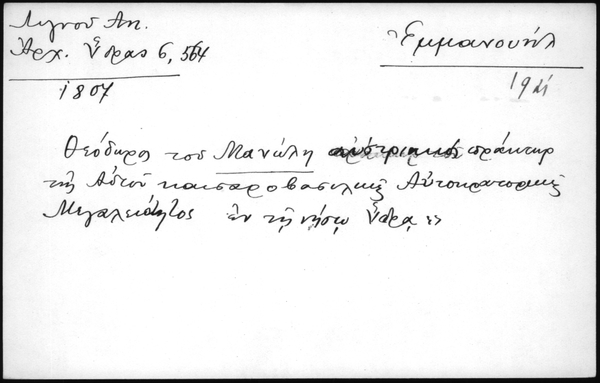 Λιγνοῦ Αντ.
Ἀρχ. Ὕδρας 6, 564
1807
Ἐμμανουήλ
Θεόδωρος του Μανώλη αὐστριακός πράκτωρ
τῆς Αὐτοῦ καισαροβασιλικῆς Αὐτοκρατορικῆς
Μεγαλειότητος ἐν τῇ νήσῳ Ὕδρᾳ »